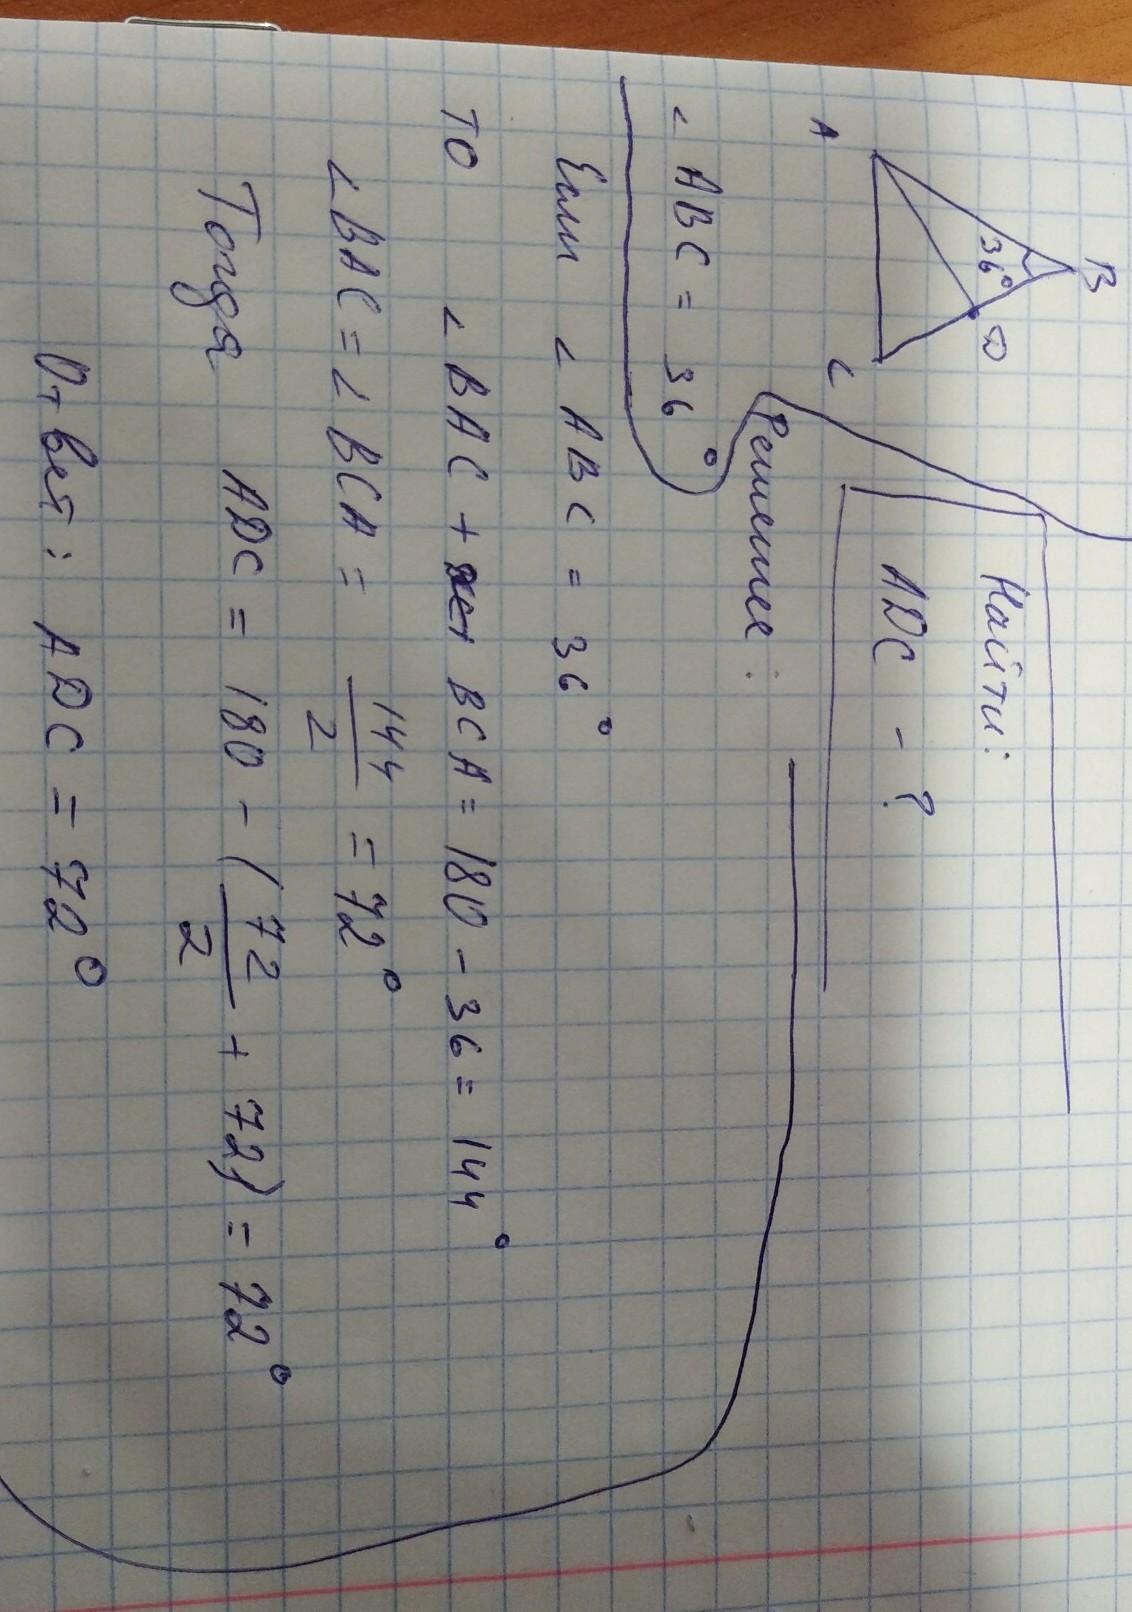 B
36°
D
A
C
Найти:
ADC - ?
∠ ABC = 36°
Решение:
Если ∠ ABC = 36°
то ∠ BAC + BCA = 180 - 36 = 144°
∠ BAC = ∠ BCA = 144/2 = 72°
Тогда ADC = 180 - (72/2 + 72) = 72°
Ответ: ADC = 72°